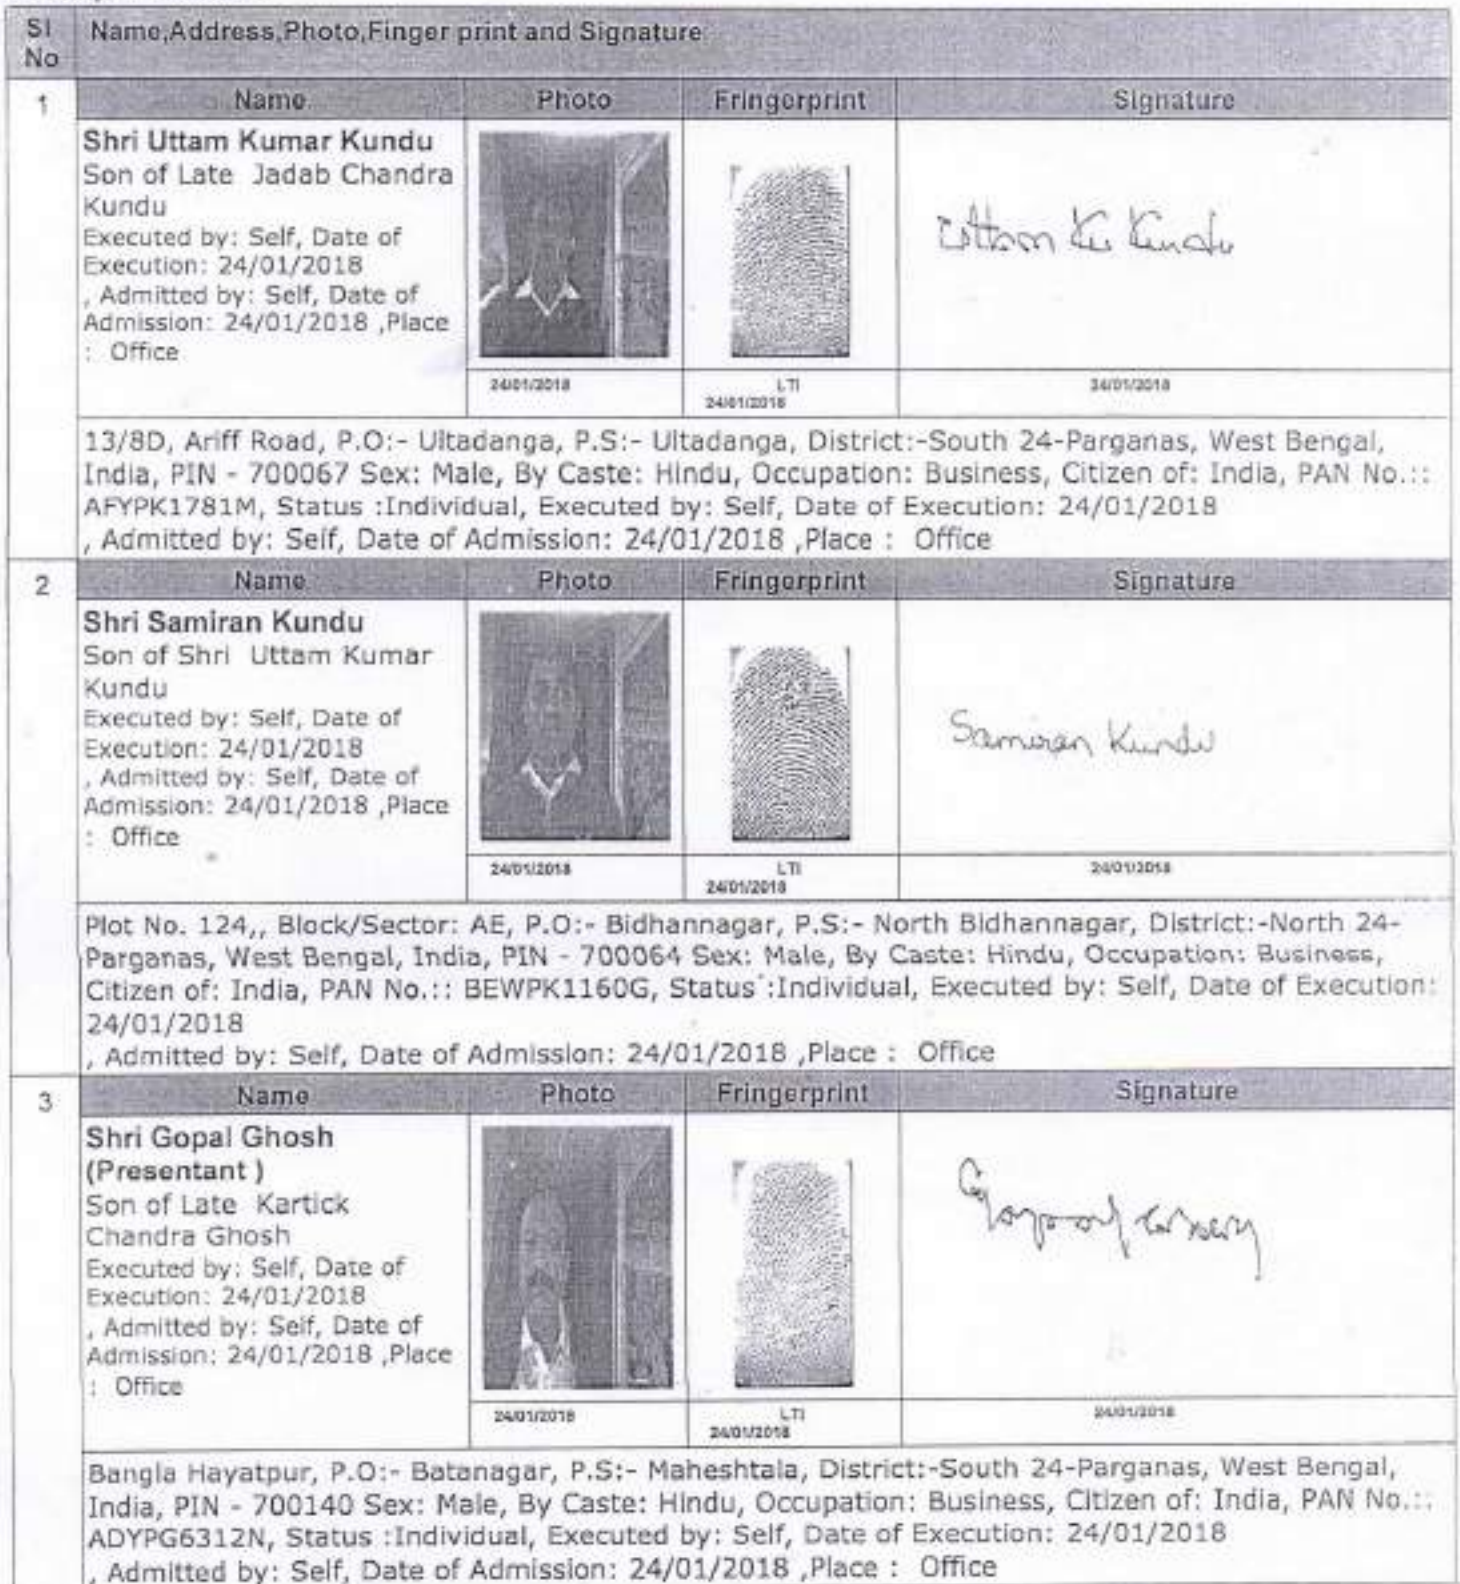 Sl No Name,Address,Photo,Finger print and Signature
1
Name Photo Fringerprint Signature
Shri Uttam Kumar Kundu
Son of Late Jadab Chandra
Kundu
Executed by: Self, Date of
Execution: 24/01/2018
, Admitted by: Self, Date of
Admission: 24/01/2018 ,Place
: Office
Uttam Kr Kundu
24/01/2018 LTI 24/01/2018 24/01/2018
13/8D, Ariff Road, P.O:- Ultadanga, P.S:- Ultadanga, District:-South 24-Parganas, West Bengal,
India, PIN - 700067 Sex: Male, By Caste: Hindu, Occupation: Business, Citizen of: India, PAN No.::
AFYPK1781M, Status :Individual, Executed by: Self, Date of Execution: 24/01/2018
, Admitted by: Self, Date of Admission: 24/01/2018 ,Place : Office
2
Name Photo Fringerprint Signature
Shri Samiran Kundu
Son of Shri Uttam Kumar
Kundu
Executed by: Self, Date of
Execution: 24/01/2018
, Admitted by: Self, Date of
Admission: 24/01/2018 ,Place
: Office
Samiran Kundu
24/01/2018 LTI 24/01/2018 24/01/2018
Plot No. 124,, Block/Sector: AE, P.O:- Bidhannagar, P.S:- North Bidhannagar, District:-North 24-
Parganas, West Bengal, India, PIN - 700064 Sex: Male, By Caste: Hindu, Occupation: Business,
Citizen of: India, PAN No.:: BEWPK1160G, Status :Individual, Executed by: Self, Date of Execution:
24/01/2018
, Admitted by: Self, Date of Admission: 24/01/2018 ,Place : Office
3
Name Photo Fringerprint Signature
Shri Gopal Ghosh
(Presentant )
Son of Late Kartick
Chandra Ghosh
Executed by: Self, Date of
Execution: 24/01/2018
, Admitted by: Self, Date of
Admission: 24/01/2018 ,Place
: Office
24/01/2018 LTI 24/01/2018 24/01/2018
Bangla Hayatpur, P.O:- Batanagar, P.S:- Maheshtala, District:-South 24-Parganas, West Bengal,
India, PIN - 700140 Sex: Male, By Caste: Hindu, Occupation: Business, Citizen of: India, PAN No.::
ADYPG6312N, Status :Individual, Executed by: Self, Date of Execution: 24/01/2018
, Admitted by: Self, Date of Admission: 24/01/2018 ,Place : Office